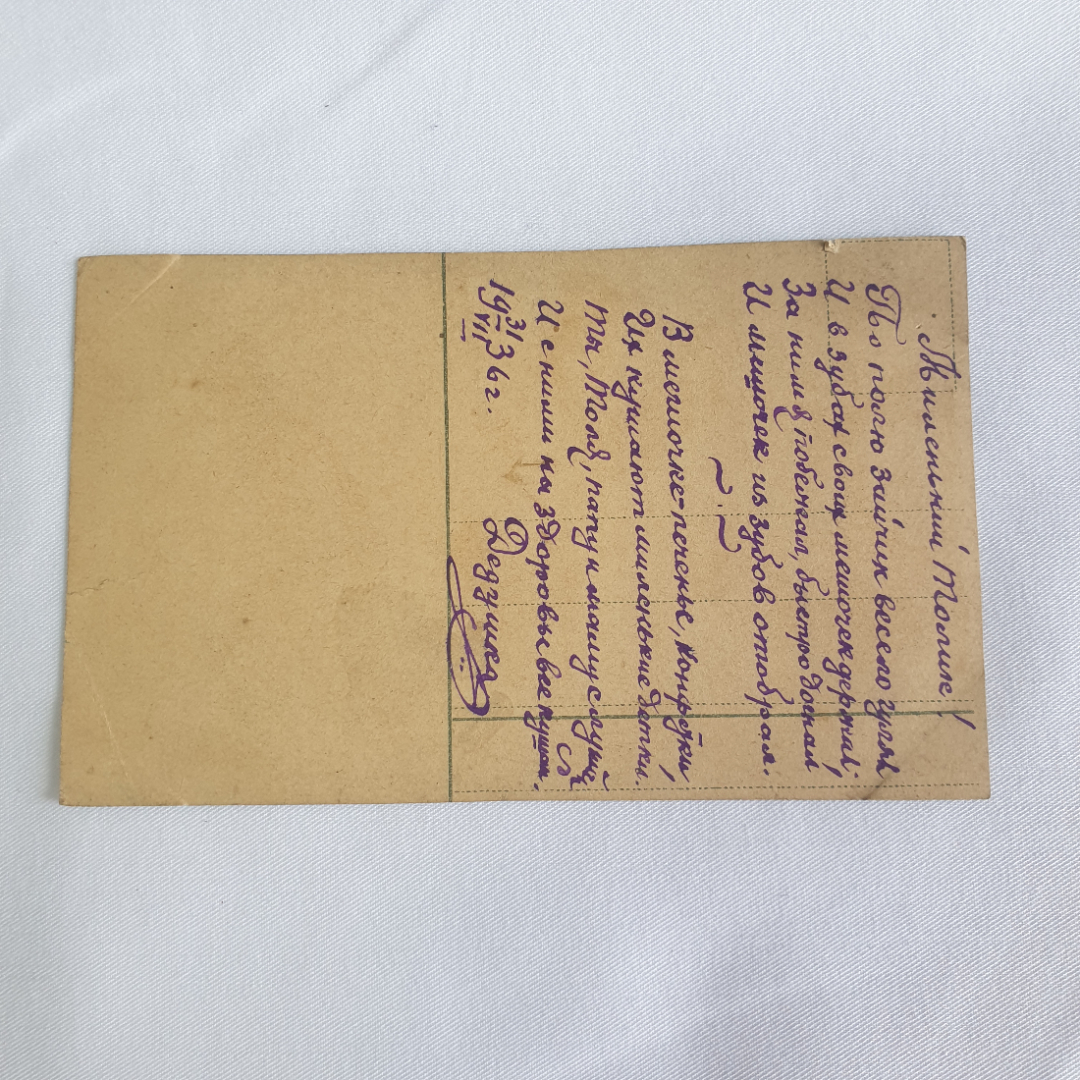 Миленький Толик!
По полю зайчик весело гулял
И в зубах своих мешочек держал;
За ним я побежал, быстро догнал
И мешочек из зубов отобрал.
~ . ~
В мешочке-печенье, конфетки,
Их кушают миленькие детки.
Ты, Толя, папу и маму слушайся
И с ними на здоровье все кушай.
19 31/VII 36 г. Дедушка